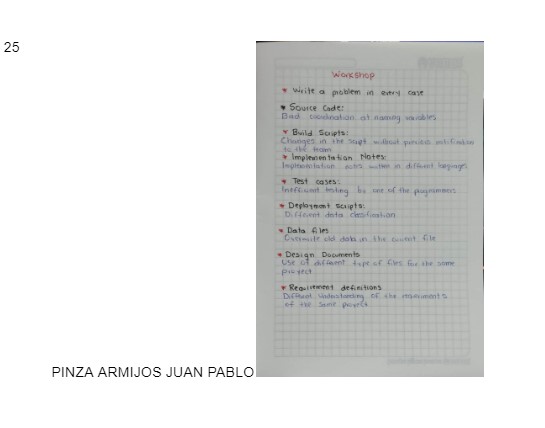 25
Workshop
Write a problem in every case
Source Code:
Bad coordination at naming variables
Build Scripts:
Changes in the script without previous notification
to the team
Implementation Notes:
Implementation notes written in different languages
Test cases:
Inefficient testing by one of the programmers
Deployment scripts:
Different data clasification
Data files
Overwrite old data in the current file
Design Documents
Use of different type of files for the same
proyect
Requirement definitions
Different understanding of the requirements
of the same proyect
PINZA ARMIJOS JUAN PABLO